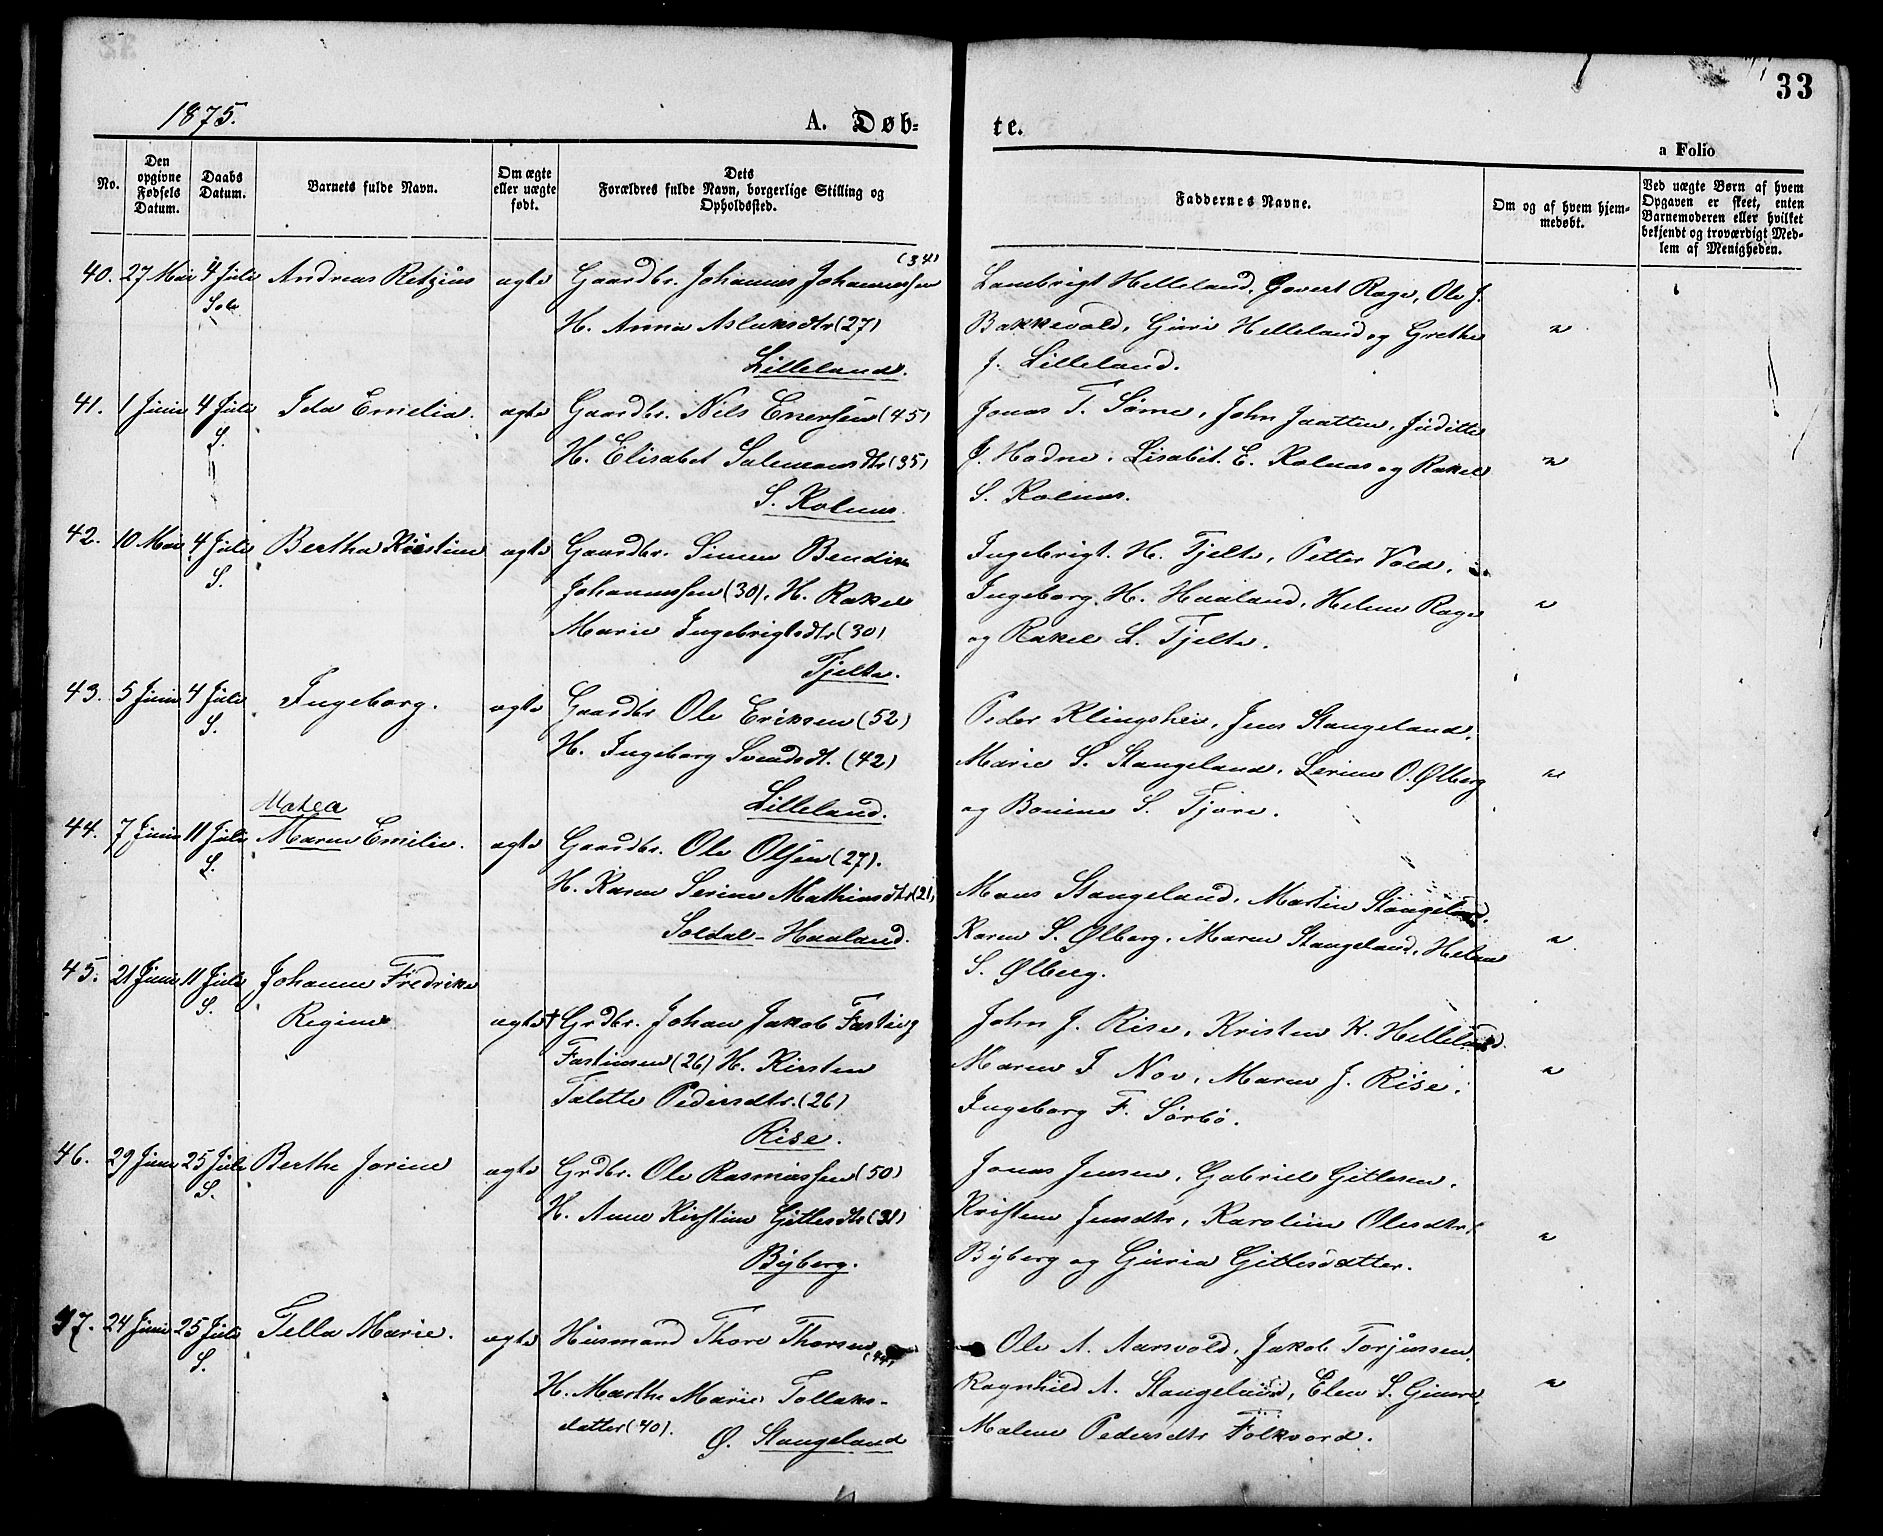 33
1875.
A. Døb-
te.
a Folio
No.
Den opgivne Fødsels Datum.
Daabs Datum.
Barnets fulde Navn.
Om ægte eller uægte født.
Dets Forældres fulde Navn, borgerlige Stilling og Opholdssted.
Faddernes Navne.
Om og af hvem hjem-medøbt.
Ved uægte Børn af hvem Opgaven er skeet, enten Barnemoderen eller hvilket bekjendt og troværdigt Med-lem af Menigheden.
40. 27 Mai 4 Juli Andreas Retzius ægte Gaardbr. Johannes Johannessen (34)
Sole H. Anna Aslaksdtr (27)
Lilleland.
Lambrigt Helleland, Govert Rage, Ole J.
Bakkevold, Guri Helleland og Grethe "
J. Lilleland.
41. 1 Juni 4 Juli Ida Emelia. ægte Gaardbr. Nils Enersen (45)
S. H. Elisabet Salemonsdtr (35)
S. Kolnes.
Jonas T. Sømme, John Jaatten, Juditte
J. Hodne, Lisabet E. Kolnes og Rakel "
S. Kolnes.
42. 10 Mai 4 Juli Bertha Kirstine ægte Gaardbr. Simen Bendix
S. Johannessen (30), H. Rakel
Marie Ingebrigtsdtr (30)
Tjelta.
Ingebrigt H. Tjelta, Petter Vold,
Ingeborg H. Haaland, Helene Rage "
og Rakel L. Tjelta.
43. 5 Juni 4 Juli Ingeborg. ægte Gaardbr Ole Eriksen (52)
S. H. Ingeborg Svendsdt. (42)
Lilleland.
Peder Klingshei, Jens Stangeland,
Marie S. Stangeland, Serine O. Ølberg "
og Bonine S. Tjore.
Matea
44. 7 Juni 11 Juli Maren Emilie. ægte Gaardbr. Ole Olsen (27).
S. H. Karen Serine Mathiasdtr (21)
Soldal-Haaland.
Mons Stangeland, Martin Stangeland,
Karen S. Ølberg, Maren Stangeland, Helene "
S. Ølberg.
45. 21 Juni 11 Juli Johanne Fredrikke
S. Regine ægte Grdbr. Johan Jakob Fasting
Fastinsen (26) H. Kirsten
Talette Pedersdtr. (26)
Rise.
John J. Rise, Kristen K. Helleland
Maren F Nov, Maren J. Rise, "
Ingeborg F. Sørbø.
46. 29 Juni 25 Juli Berthe Jorine ægte Grdbr. Ole Rasmussen (50)
S. H. Anne Kirstine Gitlesdtr (31)
Byberg.
Jonas Jensen, Gabriel Gitlesen,
Kristene Jensdtr, Karoline Olesdtr,
Byberg og Guria Gitlesdatter. "
47. 24 Juni 25 Juli Tella Marie. ægte Husmand Thore Thorsen (44)
S. H. Marthe Marie Tollaks-
datter (40).
Ø. Stangeland
Ole A. Aarsvold, Jakob Torjussen,
Ragnhild A. Stangeland, Elen S. Gimre, "
Malene Pedersdtr Folkvord.